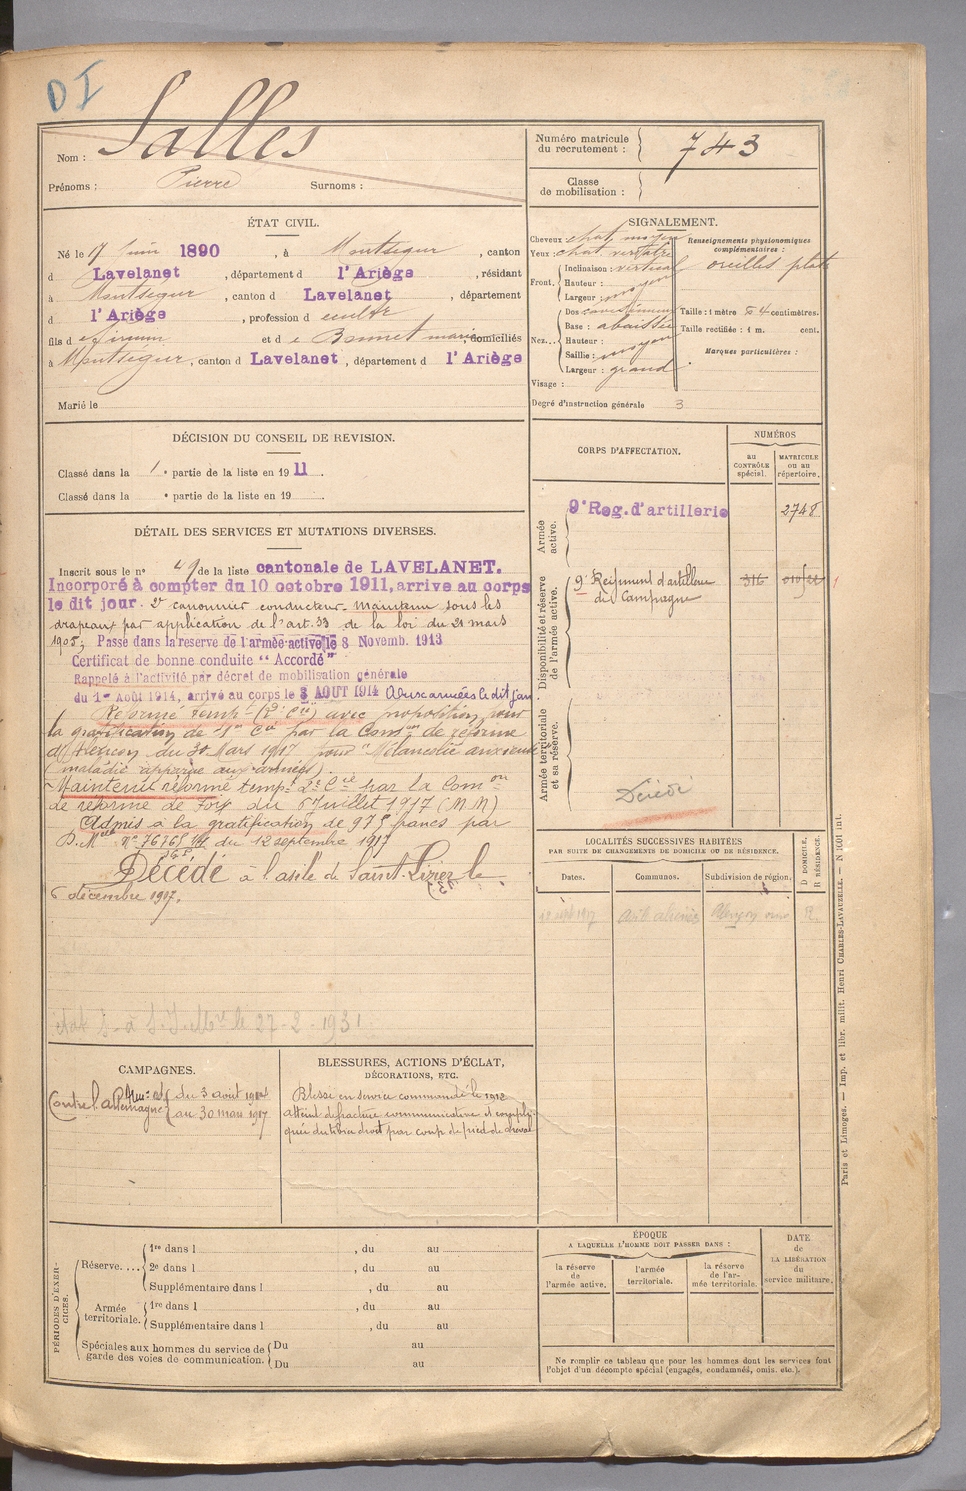 DI
Nom : Salles
Prénoms : Pierre Surnoms :
Numéro matricule du recrutement : 743
Classe de mobilisation :
ÉTAT CIVIL.
Né le 17 Juin 1890, à Montségur, canton
d Lavelanet, département d l'Ariège, résidant
à Montségur, canton d Lavelanet, département
d l'Ariège, profession d
fils d et d e Bonnet, domiciliés
à Montségur, canton d Lavelanet, département d l'Ariège
Marié le
SIGNALEMENT.
Cheveux chat. moyen
Yeux : chat. verdatre
Front. Inclinaison : vertical
Hauteur :
Largeur moyen
Nez... Dos
Base : abaissée
Hauteur :
Saillie : moyen
Largeur : grand
Visage :
Renseignements physionomiques complémentaires :
oreilles plate
Taille : 1 mètre 54 centimètres.
Taille rectifiée : 1 m. cent.
Marques particulières :
Degré d'instruction générale 3
DÉCISION DU CONSEIL DE REVISION.
Classé dans la 1e partie de la liste en 1911.
Classé dans la e partie de la liste en 19 .
DÉTAIL DES SERVICES ET MUTATIONS DIVERSES.
Inscrit sous le n° 49 de la liste cantonale de LAVELANET.
Incorporé à compter du 10 octobre 1911, arrive au corps
le dit jour. 2e canonnier conducteur. Maintenu sous les
drapeaux par application de l'art. 33 de la loi du 21 mars
1905; Passé dans la reserve de l'armée active le 8 Novemb. 1913
Certificat de bonne conduite "Accordé"
Rappelé à l'activité par décret de mobilisation générale
du 1er Août 1914, arrivé au corps le 3 AOUT 1914 Aux armées le dit jour
Réformé temp. (2e Cie) avec proposition pour
la gratification de 1re Cie par la Comon de réforme
d'Alençon du 30 Mars 1917 pour "Mélancolie anxieuse
(maladie apparue aux armées).
Maintenu réformé temp. 2e Cie par la Comon
de réforme de Foix du 6 Juillet 1917 (M M)
Admis à la gratification de 975 francs par
D. Melle N° 76765 du 12 septembre 1917
Décédé à l'asile de Saint-Lizier le
6 décembre 1917.
27-2-1931
CORPS D'AFFECTATION.
NUMÉROS
au CONTRÔLE spécial.
MATRICULE ou au répertoire.
Armée active.
9e Reg. d'artillerie 2748
Disponibilité et réserve de l'armée active.
9e Régiment d'artillerie de Campagne 316
Armée territoriale et sa réserve.
Décédé
LOCALITÉS SUCCESSIVES HABITÉES
PAR SUITE DE CHANGEMENTS DE DOMICILE OU DE RÉSIDENCE.
Dates. Communes. Subdivision de région. D DOMICILE. R RÉSIDENCE.
1917 Alençon R.
CAMPAGNES.
Contre l'Allemagne du 3 août 1914
au 30 mars 1917
BLESSURES, ACTIONS D'ÉCLAT,
DÉCORATIONS, ETC.
Blessé en service commandé le 1912
atteint de fracture communicative et compli-
quée du tibia droit par coup de pied de cheval
PÉRIODES D'EXERCICES.
Réserve.... 1re dans l , du au
2e dans l , du au
Supplémentaire dans l , du au
Armée territoriale. 1re dans l , du au
Supplémentaire dans l , du au
Spéciales aux hommes du service de garde des voies de communication. Du au
Du au
ÉPOQUE
A LAQUELLE L'HOMME DOIT PASSER DANS :
la réserve de l'armée active.
l'armée territoriale.
la réserve de l'armée territoriale.
DATE de LA LIBÉRATION du service militaire.
Ne remplir ce tableau que pour les hommes dont les services font
l'objet d'un décompte spécial (engagés, condamnés, omis. etc.).
Paris et Limoges. — Imp. et libr. milit. Henri CHARLES-LAVAUZELLE. — N 1001 int.